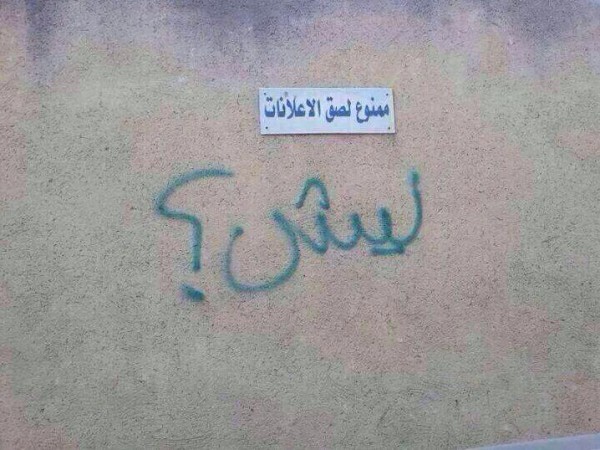 ممنوع لصق الاعلانات
ليش؟